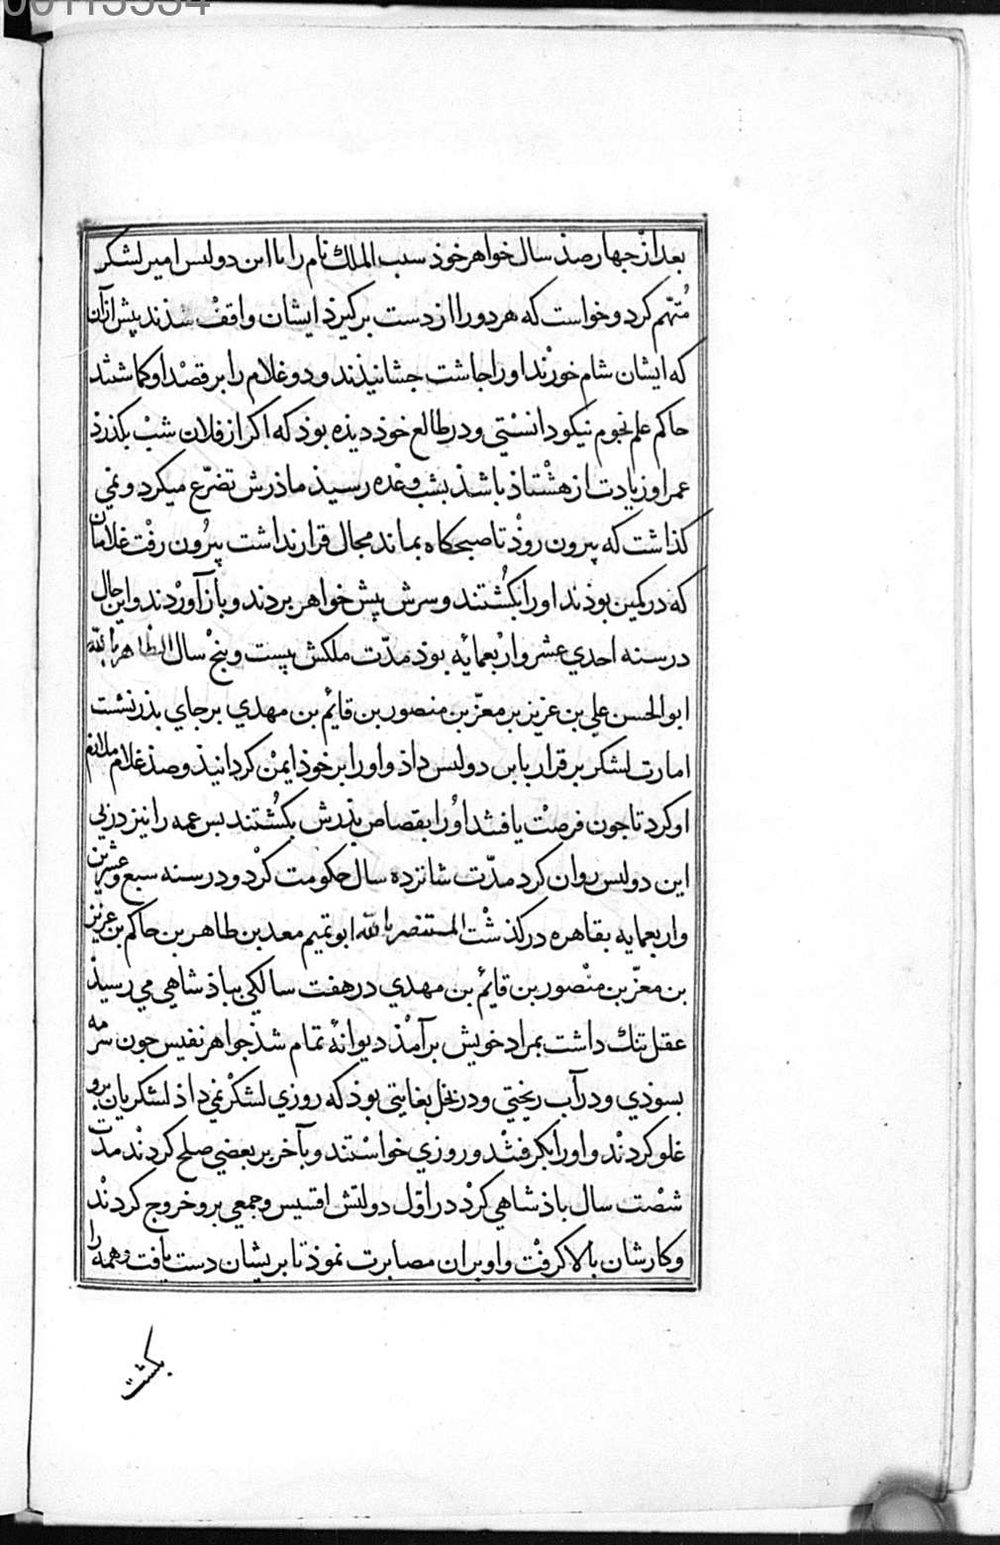 00113534
بعد از جهارصذ سال خواهر خوذ ست الملك نام را با ابن دولىس امير لشكر
مُتهّم كرد و خواست كه هر دو را از دست بركيرذ ايشان واقف شذند پيش ازآن
كه ايشان شام خورند او را جاشت جشانيذند و دو غلام را بر قصد او كماشتند
حاكم علم نجوم نيكو دانستي و در طالع خوذ ديذه بوذ كه اكر از فلان شب بكذرذ
عمر او زيادت از هشتاذ باشذ بشب وعده رسيذ ماذرش تضرّع ميكرد و نمي
كذاشت كه بيرون روذ تا صبحكاه بماند مجال قرار نداشت بيرُون رفت غلامان
كه در كمين بوذند او را بكُشتند و سرش پيش خواهر بردند و باز آوردند و اين حال
در سنه احدي عشر واربعمايه بوذ مدّت ملكش بيست و بنج سال الظاهر بالله
ابو الحسن علي بن عزيز بن معزّ بن منصور بن قائم بن مهدي بر جاي بذر نشت
امارت لشكر بر قرار بابن دولىس داذ و او را بر خوذ ايمن كردانيذ و صذ غلام ملازم
او كرد تا جون فرصت يافتند اوُرا بقصاص بذرش بكُشتند بس عمه را نيز در پي
ابن دولىس روان كرد مدّت شانزده سال حكومت كرْد و در سنه سبع وعشرين
واربعمايه بقاهره دركذشت المستنصر بالله ابو تميم معد بن طاهر بن حاكم بن عزيز
بن معزّ بن منصور بن قائم بن مهدي در هفت سالكي بباذشاهي مي رسيذ
عقل تنك داشت بمراد خويش برآمذ ديوانهٔ تمام شذ جواهر نفيس جون سرمه
بسوذي و در آب ريختي و در بخل بغايتي بوذ كه روزي لشكر نمي داذ لشكريان برو
غلو كردند و او را بكرفتند و روزي خواستند و بآخر بر بعضي صلح كردند مدّت
شصت سال باذشاهي كرْد در اوّل دولتش اقسيس و جمعي برو خروج كردند
و كارشان بالا كرفت و او بران مصابرت نموذ تا بريشان دست يافت و همه را
بكشت